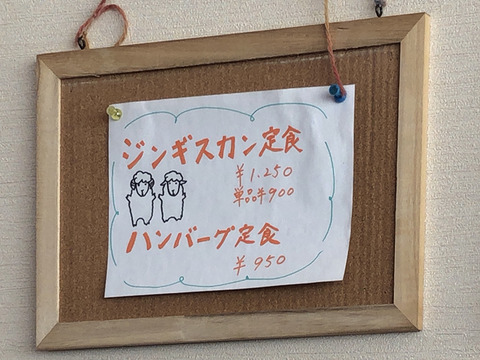 ジンギスカン定食
¥1.250
単品¥900
ハンバーグ定食
¥950